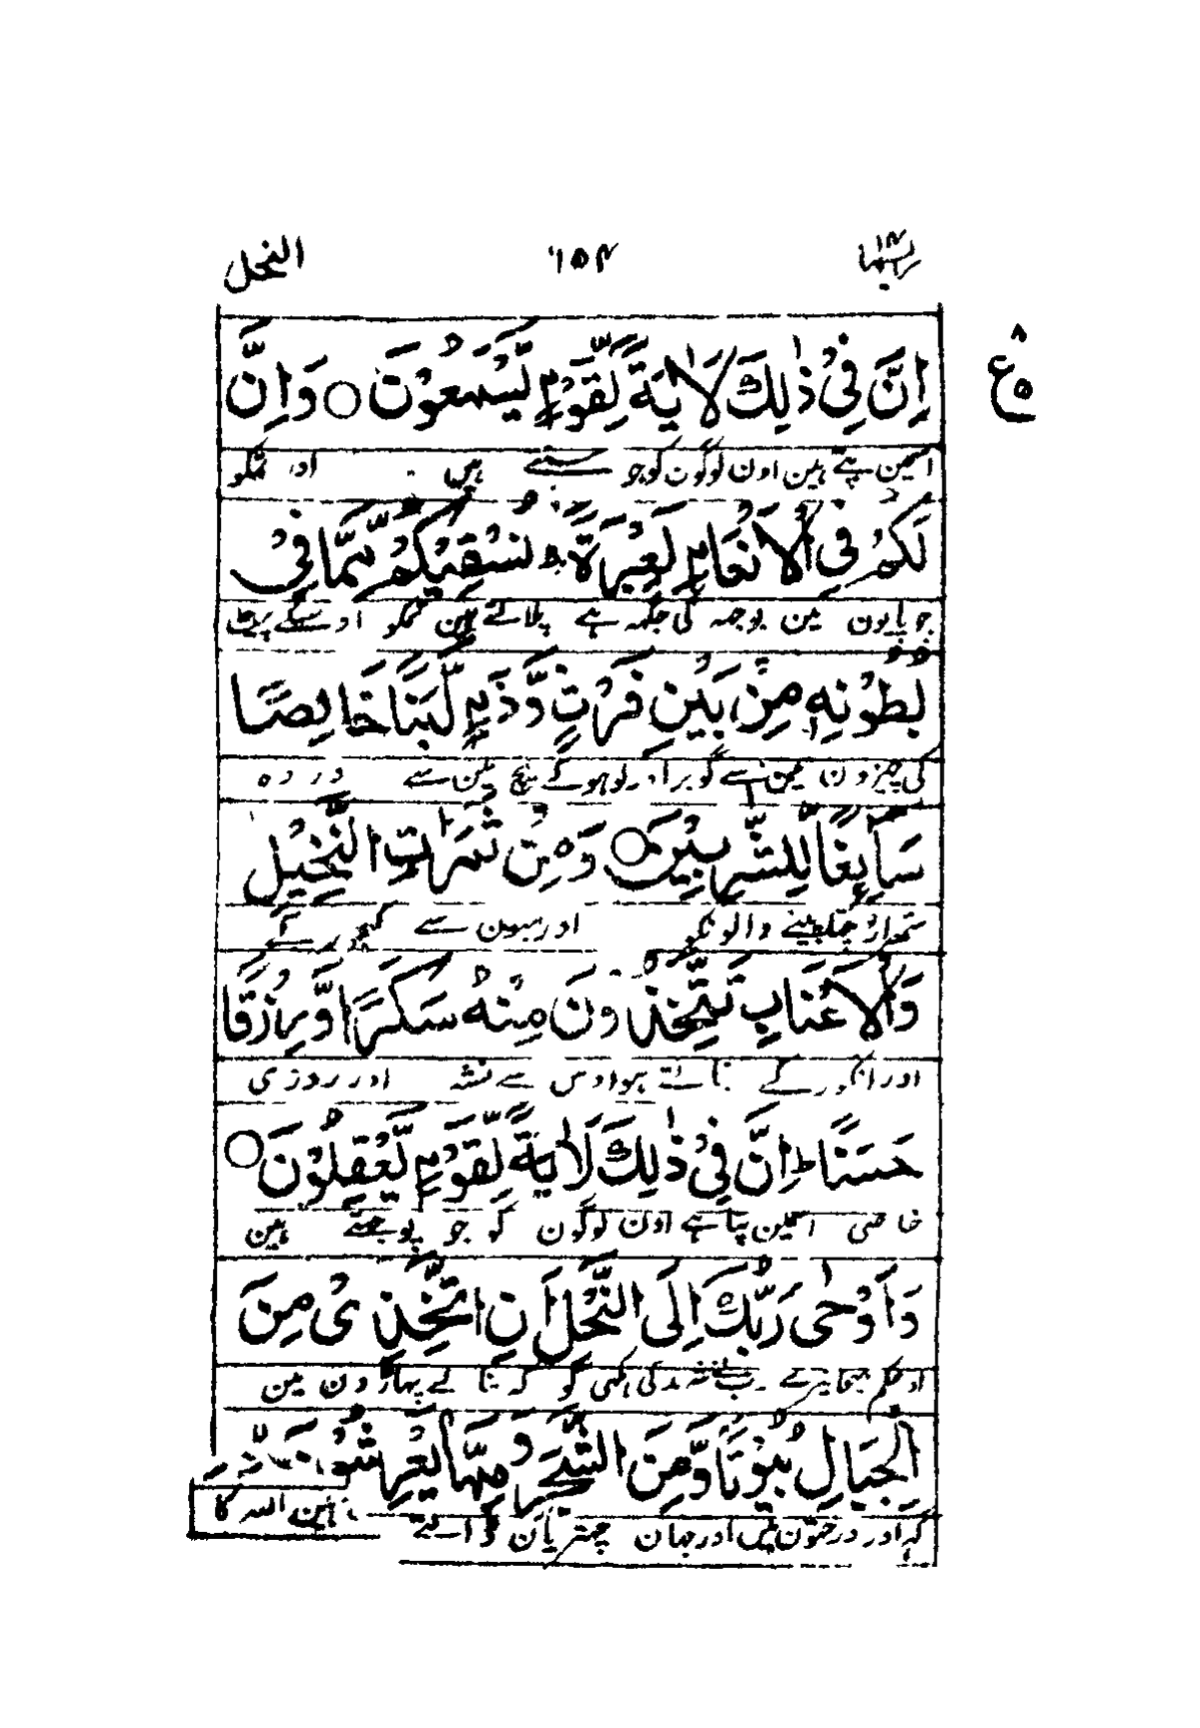 ربما ١٤ ١٥٤ النحل
ع ٨ ٥
اِنَّ فِيْ ذٰلِكَ لَاٰيَةً لِّقَوْمٍ يَّسْمَعُوْنَ ○ وَاِنَّ
اسمین پتے ہین اون لوگون کو جو سنتے ہین اور تمکو
لَكُمْ فِي الْاَنْعَامِ لَعِبْرَةً ط نُسْقِيْكُمْ مِّمَّا فِيْ
چوپایون مین بوجهہ کی جگهہ ہے پلاتے ہین تمکو اوسکے پیٹ
بُطُوْنِهٖ مِنْۢ بَيْنِ فَرْثٍ وَّدَمٍ لَّبَنًا خَالِصًا
کی چیزون مین سے گوبر اور لوہو کے بیچ مین سے دوده
سَآئِغًا لِّلشّٰرِبِيْنَ ○ وَمِنْ ثَمَرٰتِ النَّخِيْلِ
پینے والونکو اور میون سے کهجور کے
وَالْاَعْنَابِ تَتَّخِذُوْنَ مِنْهُ سَكَرًا وَّرِزْقًا
اور انگور کے بناتے ہو اوس سے نشہ اور روزی
حَسَنًا ط اِنَّ فِيْ ذٰلِكَ لَاٰيَةً لِّقَوْمٍ يَّعْقِلُوْنَ ○
خاصی اسمین پتا ہے اون لوگون کو جو بوجهتے ہین
وَاَوْحٰى رَبُّكَ اِلَى النَّحْلِ اَنِ اتَّخِذِيْ مِنَ
اور حکم بهیجا تیرے رب نے شہد کی مکهی کو کہ بنا لے پہاڑون مین
الْجِبَالِ بُيُوْتًا وَّمِنَ الشَّجَرِ وَمِمَّا يَعْرِشُوْنَ
گهر اور درختون مین اور جہان چهتریان ڈالتے ہین اللہ کا